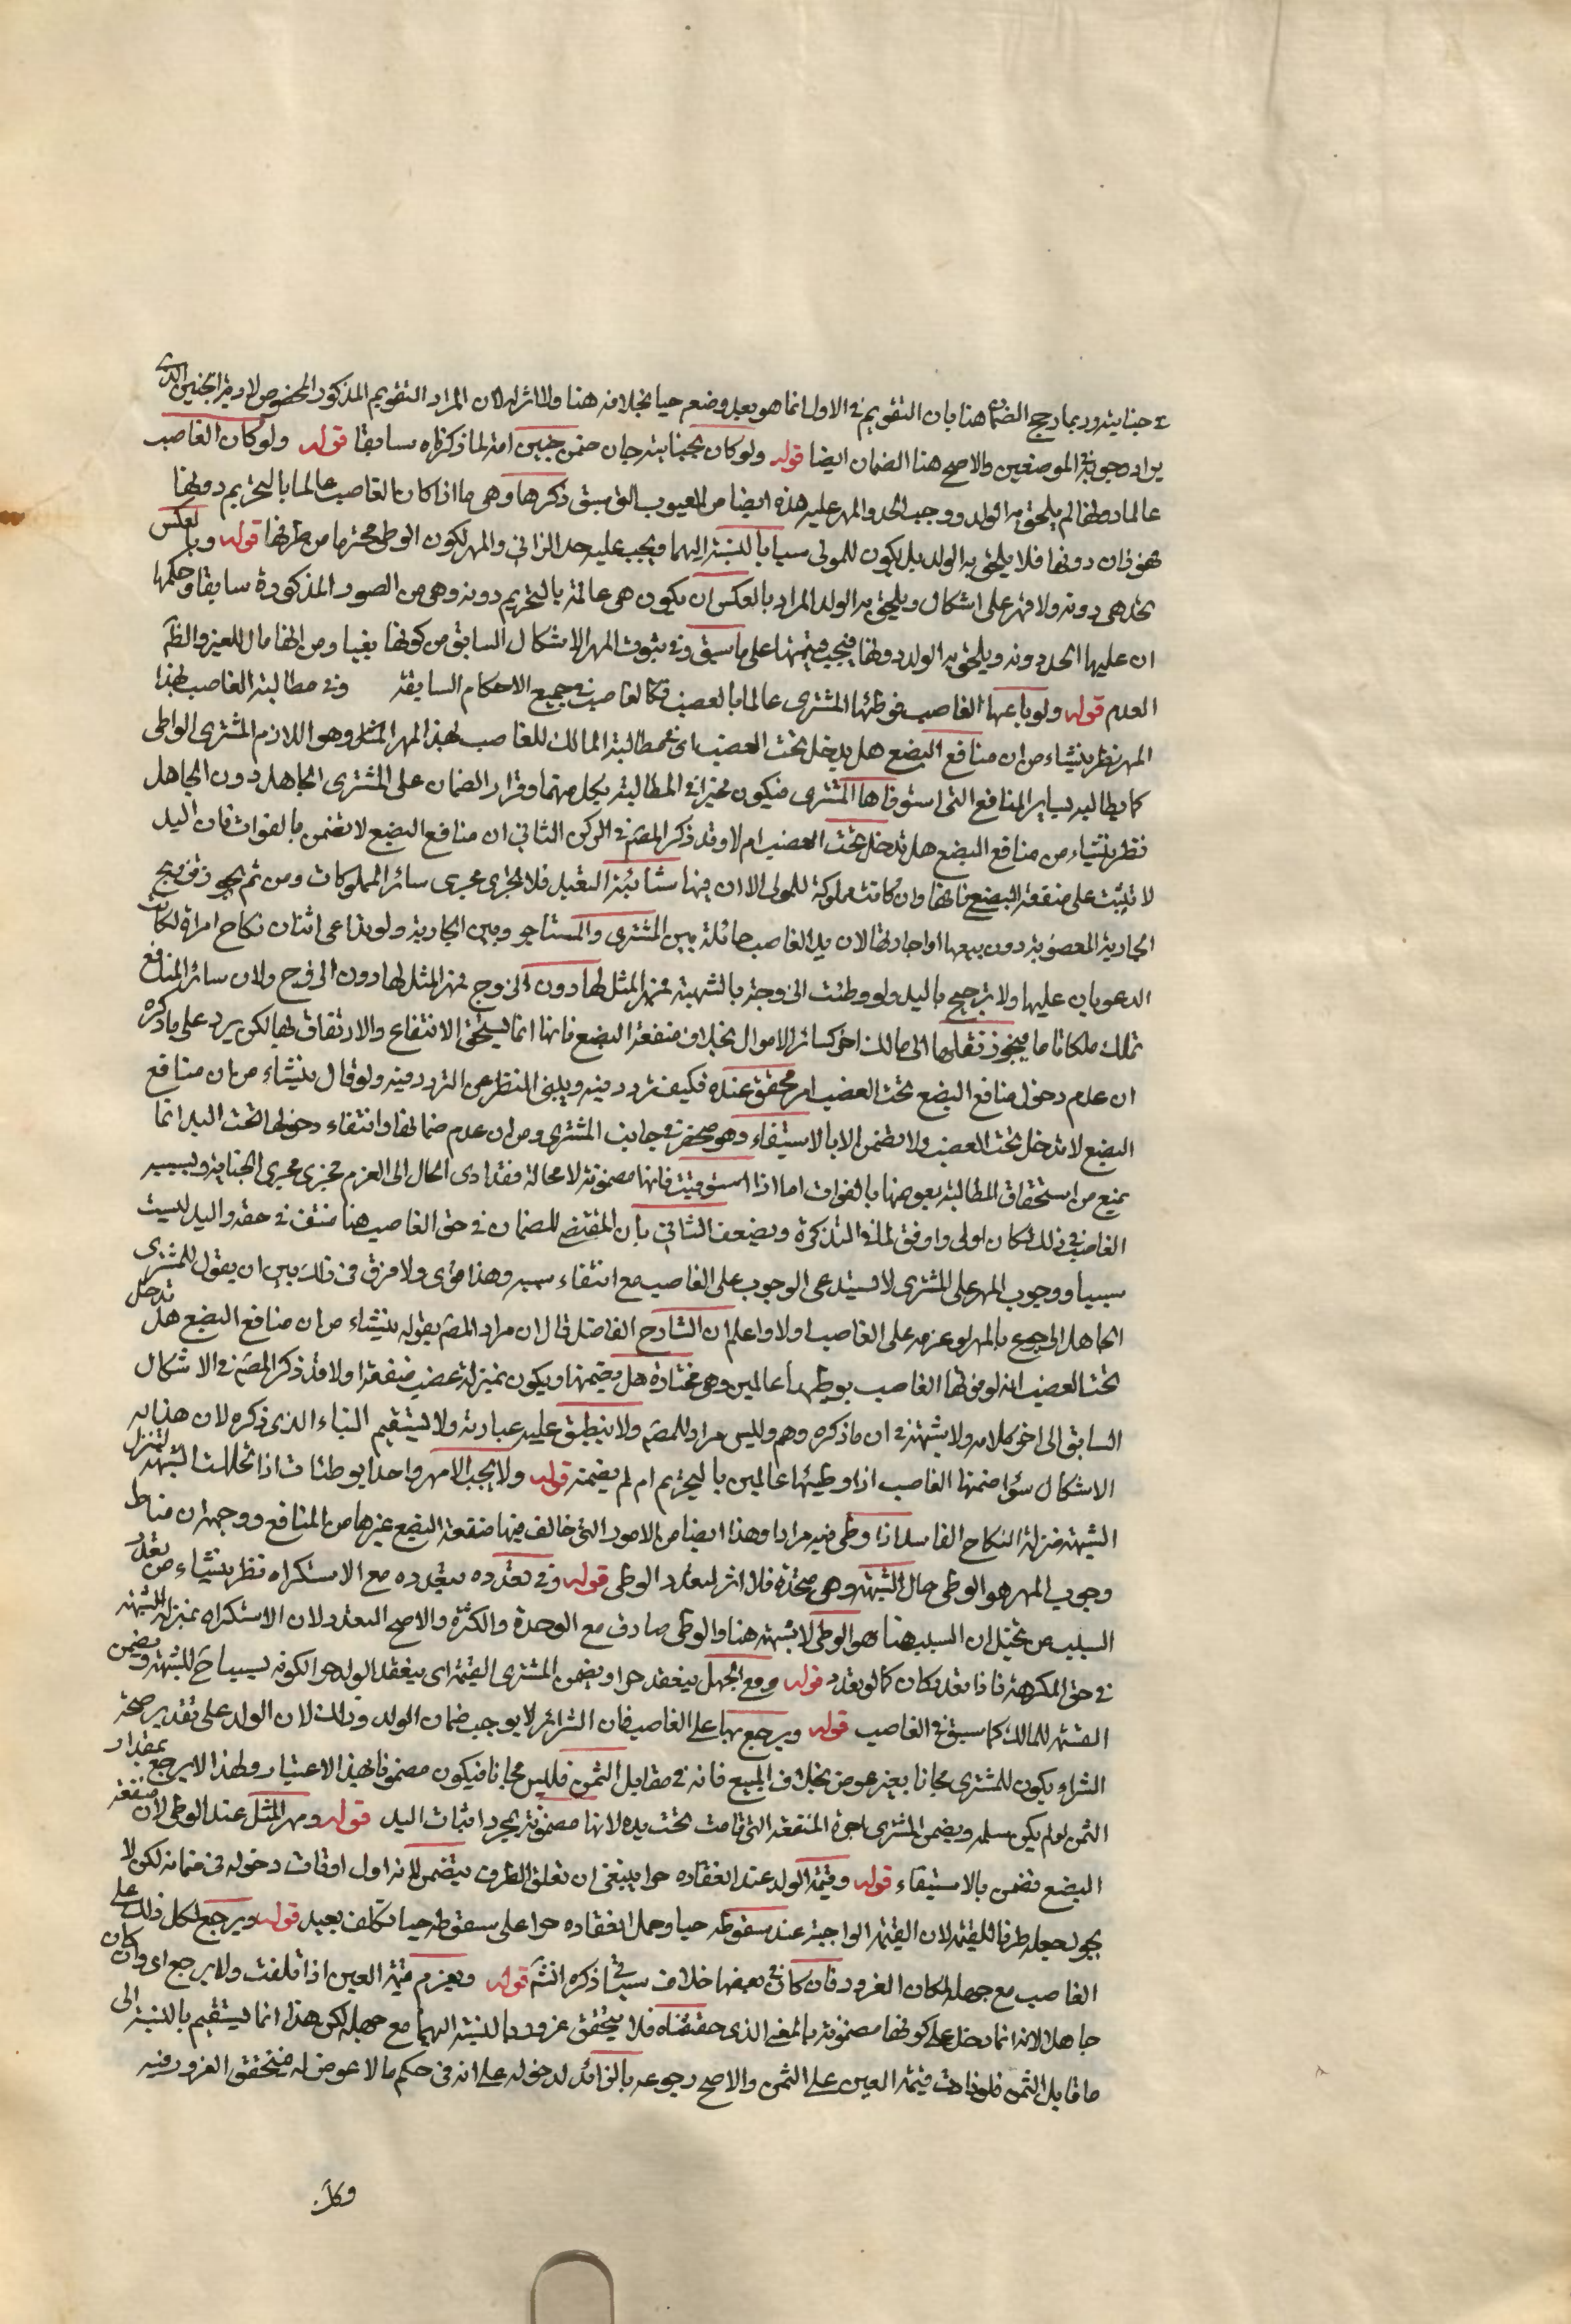 في جنايته وربما رجح الضمان هنا بان التقويم في الاول انما هو بعد وضعه حيا بخلافه هنا ولا اثر له لان المراد التقويم المذكور المخصوص لا دية الجنين الذي
يراد وجوبه في الموضعين والاصح هنا الضمان ايضا قوله ولو كان بجناية جان ضمن جنين امة لما ذكرناه سابقا قوله ولو كان الغاصب
عالما دونها لم يلحق به الولد ووجب الحد والمهر عليه هذه ايضا من العيوب التي سبق ذكرها وهي ما اذا كان الغاصب عالما بالتحريم دونها
فهو زان دونها فلا يلحق به الولد بل يكون للمولى سيابا بالنسبة اليهما ويجب عليه حد الزاني والمهر لكون الوطي محترما من طرفها قوله وبالعكس
تحد هي دونه ولا مهر على اشكال ويلحق به الولد المراد بالعكس ان يكون هي عالمة بالتحريم دونه وهي من الصور المذكورة سابقا وحكمها
ان عليها الحد دونه ويلحق به الولد دونها فيجب قيمتها على ما سبق وفي ثبوت المهر الاشكال السابق من كونها بغيا ومن انها مال للغير والظم
العدم قوله ولو باعها الغاصب فوطئها المشتري عالما بالغصب فكالغاصب في جميع الاحكام السابقة وفي مطالبة الغاصب بهذا
المهر نظر ينشاء من ان منافع البضع هل يدخل تحت الغصب اي في مطالبة المالك للغاصب بهذا المهر المثل وهو اللازم المشتري الواطي
كما يطالبه بساير المنافع التي استوفاها المشتري فيكون مخيرا في المطالبة بكل منهما وقرار الضمان على المشتري الجاهل دون الجاهل
نظر ينشاء من منافع البضع هل تدخل تحت الغصب ام لا وقد ذكر المصم في الركن الثاني ان منافع البضع لا تضمن بالفوات فان اليد
لا تثبت على منفعة البضع فانها وان كانت مملوكة للمولى الا ان فيها شائبة التعبد فلا تجري مجرى سائر المملوكات ومن ثم يجوز تزويج
الجارية المغصوبة دون بيعها او اجارتها لان يد الغاصب حائلة بين المشتري والمستاجر وبين الجارية ولو تداعى اثنان نكاح امراة لكانت
الدعويان عليها ولا ترجيح باليد ولو وطئت الزوجة بالشبهة فمهر المثل لها دون الزوج فمهر المثل لها دون الزوج ولان سائر المنافع
تملك ملكا تاما فيجوز نقلها الى مالك اخر كسائر الاموال بخلاف منفعة البضع فانها انما يستحق الانتفاع والارتفاق بها لكن يرد على ما ذكره
ان عدم دخول منافع البضع تحت الغصب امر محقق عنده فكيف تردد فيه ويبني النظر على التردد فيه ولو قال ينشاء من ان منافع
البضع لا تدخل تحت الغصب ولا تضمن الا بالاستيفاء وهو منحصر في جانب المشتري ومن ان عدم ضمانها وانتفاء دخولها تحت اليد انما
يمنع من استحقاق المطالبة بعوضها بالفوات اما اذا استوفيت فانها مضمونة لا محالة فقد ادى الحال الى الغرم فجرى مجرى الجناية وبسبب
الغاصب في ذلك لكان اولى واوفق لما في التذكرة ويضعف الثاني بان المقتضي للضمان في حق الغاصب هنا منتف في حقه واليد ليست
سببا ووجوب المهر على المشتري لا يستدعي الوجوب على الغاصب مع انتفاء سببه وهذا قوي ولا فرق في ذلك بين ان يقول للمشتري
الجاهل الرجوع بالمهر لو غرمه على الغاصب او لا واعلم ان الشارح الفاضل قال ان مراد المصم بقوله ينشاء من ان منافع البضع هل تدخل
تحت الغصب انه لو فوتها الغاصب بوطئها عالمين وهي مختارة هل يضمنها ويكون بمنزلة غصب منفعة او لا قد ذكر المصم في الاشكال
السابق الى اخر كلامه ولا شبهة في ان ما ذكره وهم وليس مراد المصم ولا ينطبق عليه عبارته ولا يستقيم البناء الذي ذكره لان هذا به
الاشكال سوا ضمنها الغاصب اذا وطئها عالمين بالتحريم ام لم يضمنه قوله ولا يجب الا مهر واحد بوطئات اذا اتحدت الشبهة لتنزل
الشبهة منزلة النكاح الفاسد اذا وطي فيه مرارا وهذا ايضا من الامور التي خالف فيها منفعة البضع غيرها من المنافع ووجهه ان مناط
وجوب المهر هو الوطي حال الشبهة وهي متحدة فلا اثر لتعدد الوطي قوله وفي تعدده بتعدده مع الاستكراه نظر ينشاء من تعدد
السبب من تخيل ان السبب هنا هو الوطي لا شبهة هنا والوطي صادق مع الوحدة والكثرة والاصح التعدد لان الاستكراه بمنزلة الشبهة
في حق المكرهة فاذا تعدد كان كما لو تعدد قوله ومع الجهل ينعقد حرا ويضمن المشتري القيمة اي ينعقد الولد حرا لكونه نسيبا للشبهة ويضمن
القيمة للمالك كما سبق في الغاصب قوله ويرجع بها على الغاصب فان الشراء لا يوجب ضمان الولد وذلك لان الولد على تقدير صحة
الشراء يكون للمشتري مجانا بغير عوض بخلاف المبيع فانه في مقابل الثمن فليس مجانا فيكون مضمونا بهذا الاعتبار ولهذا لا يرجع بمقدار
الثمن لو لم يكن سلمه ويضمن المشتري اجرة المنفعة التي فاتت تحت يده لانها مضمونة بمجرد اثبات اليد قوله ومهر المثل عند الوطي لان منفعة
البضع تضمن بالاستيفاء قوله وقيمة الولد عند انعقاده حرا ينبغي ان تعلق الظرف بيضمن لانه اول اوقات دخوله في ضمانه لكن لا
يجوز جعله ظرفا للقيمة لان القيمة الواجبة عند سقوطه حيا وحمل انعقاده حرا على سقوطه حيا تكلف بعيد قوله ويرجع بكل ذلك على
الغاصب مع جهله لمكان الغرور فان كان في بعضها خلاف سيأتي ذكره انشم قوله ويغرم قيمة العين اذا تلفت ولا يرجع اي وان كان
جاهلا لانه انما دخل على كونها مضمونة بالمعنى الذي حققناه فلا يتحقق غرور بالنسبة اليهما مع جهله لكن هذا انما يستقيم بالنسبة الى
ما قابل الثمن فلو زادت قيمة العين على الثمن والاصح رجوعه بالزائد لدخوله على انه في حكم ما لا عوض له فيتحقق الغرور فيه
وكل